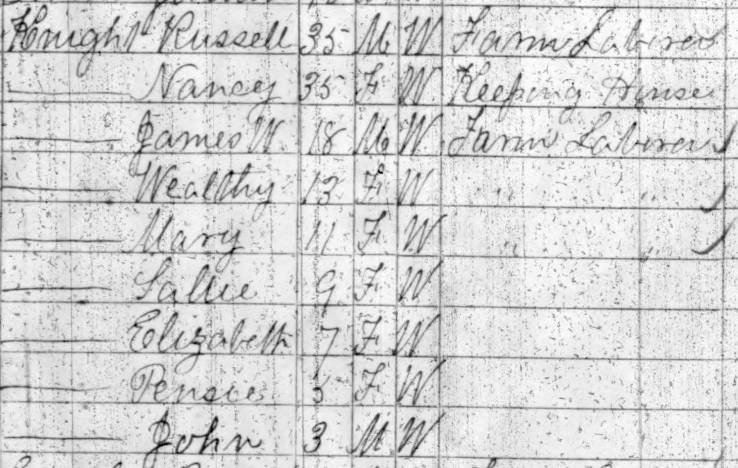 Knight Russell 35 M W Farm Laborer
—— Nancy 35 F W Keeping House
—— James W 18 M W Farm Laborer
—— Wealthy 13 F W " "
—— Mary 11 F W " "
—— Sallie 9 F W
—— Elizabeth 7 F W
—— Pensie 5 F W
—— John 3 M W